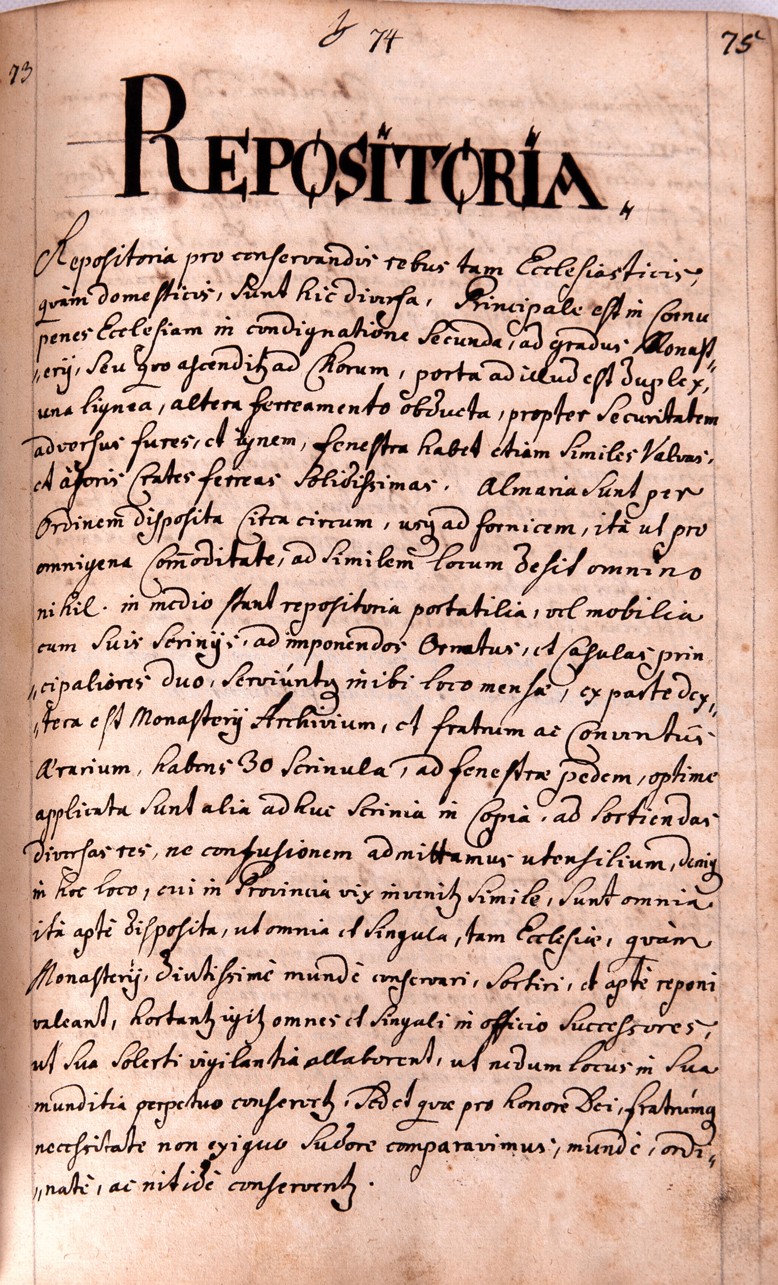 73
74
75
REPOSITORIA.
Repositoria pro conservandis rebus tam Ecclesiasticis,
quàm domesticis, sunt hic diversa, Principale est in Cornu
penes Ecclesiam in condignatione Secunda, ad gradus Monast„
„erij, seu quo ascenditz ad Chorum, porta ad illud est duplex,
una lignea, altera ferreamento obducta, propter Securitatem
adversus fures, et ignem, fenestra habet etiam similes Valvas,
et à foris Crates ferreas Solidissimas. Almaria sunt per
Ordinem disposita Circa circum, usq ad fornicem, ità ut pro
omnigena Com̃oditate, ad similem locum desit omnino
nihil. in medio stant repositoria portatilia, vel mobilia
cum suis scrinijs, ad imponendos Ornatus, et Casulas prin
„cipaliores duo, serviuntq inibi loco mensæ, ex parte dex„
„tera est Monasterij Archivium, et fratrum ac Conventûs
Ærarium, habens 30 Scrinula, ad fenestræ pedem, optime
applicata sunt alia adhuc Scrinia in Copia, ad sortiendas
diversas res, ne confusionem admittamus utensilium, deniq
in hoc loco, cui in Provincia vix invenitz simile, sunt omnia
ità aptè disposita, ut omnia et singula, tam Ecclesiæ, quàm
Monasterij, diutissimè mundè conservari, sortiri, et aptè reponi
valeant, hortantz igitz omnes et singuli in officio Successores,
ut sua solerti vigilantia allaborent, ut nedum locus in sua
munditia perpetuo conservetz, sed et quæ pro honore Dei, fratrumq
necessitate non exiguo sudore comparavimus, mundè, ordi„
„natè, ac nitidè conserventz.